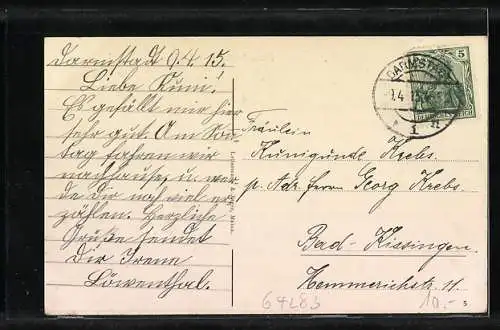 Darmstadt 9.4.15.
Liebe Kuni!
Es gefällt mir hier
sehr gut. Am Son-
tag fahren wir
nachhause, u. wer-
de Dir noch viel er-
zählen. Herzliche
Grüße sendet
Dir Irene
Löwenthal.
5
DARMSTADT
Fräulein
Kunigunde Krebs.
p. Adr. Herrn Georg Krebs.
Bad-Kissingen.
Hemmerichstr. 11.
64283
10.-
5